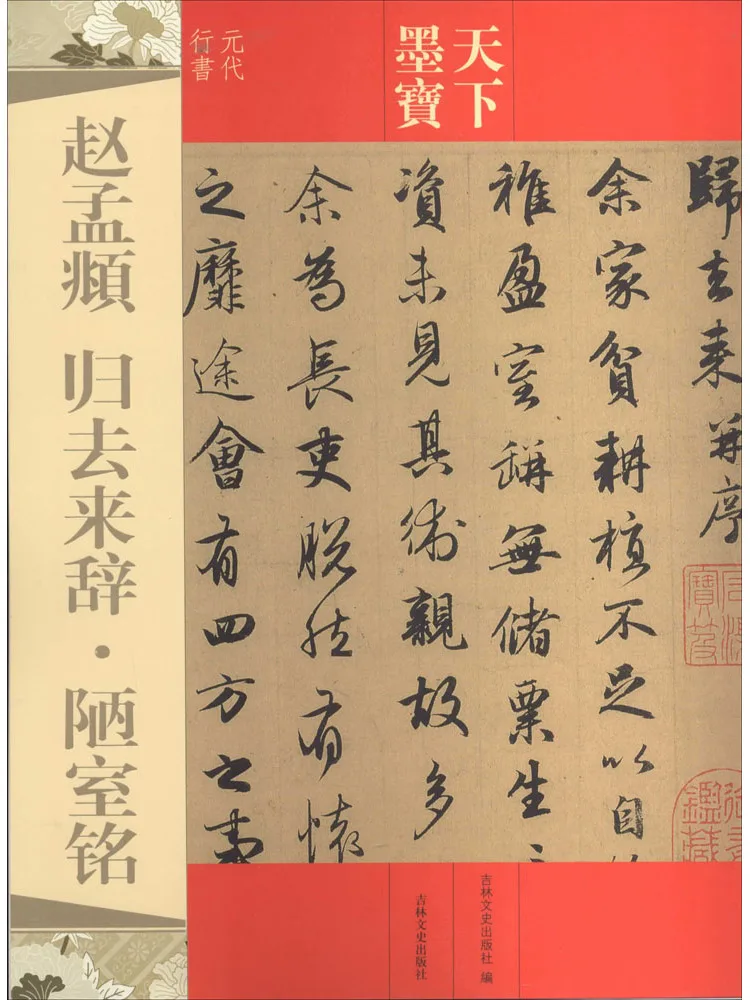 天下
墨寶
元代
行書
赵孟頫 归去来辞·陋室铭
歸去来并序
余家貧耕植不足以自
稚盈室缾無儲粟生
資未見其術親故多
余為長吏脱然有懷
之靡途會有四方之事
寶笈
鑑藏
吉林文史出版社 编
吉林文史出版社